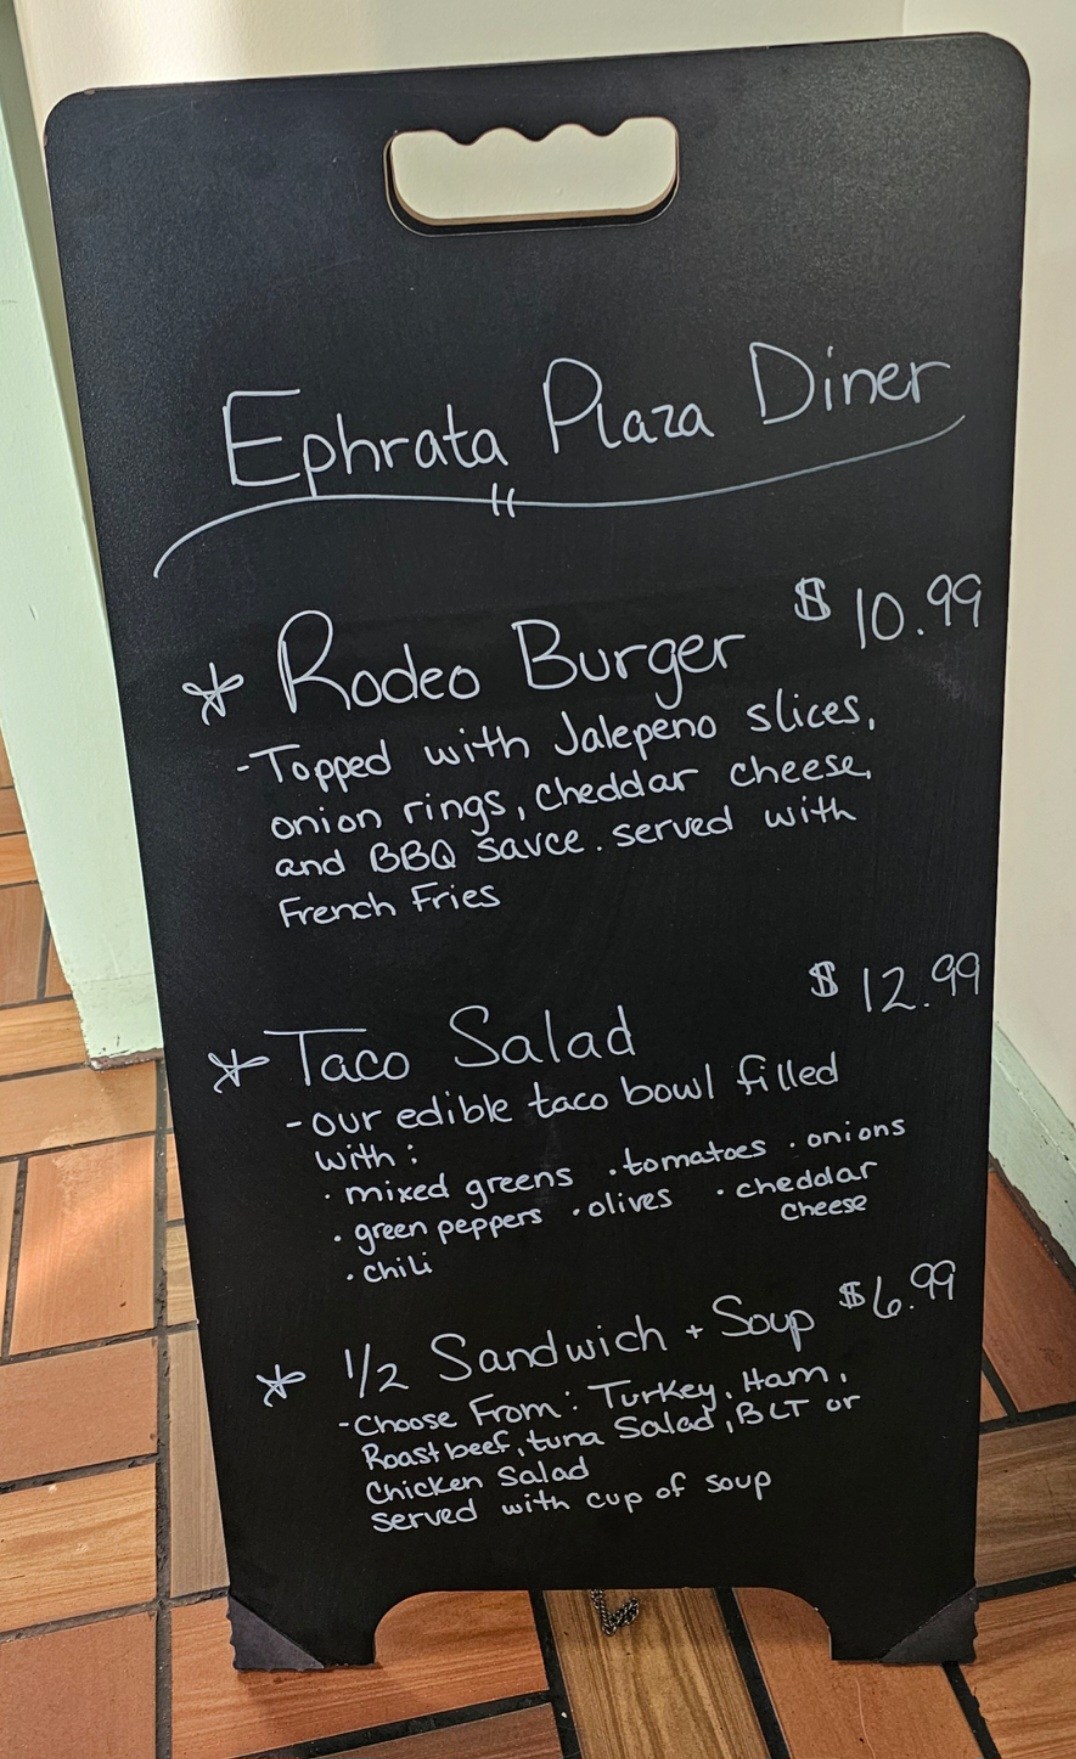 Ephrata Plaza Diner
* Rodeo Burger $10.99
-Topped with Jalepeno slices,
onion rings, cheddar cheese,
and BBQ sauce. served with
French Fries
$12.99
* Taco Salad
- our edible taco bowl filled
with:
· mixed greens · tomatoes · onions
· green peppers · olives · cheddar
cheese
· chili
* 1/2 Sandwich + Soup $6.99
-Choose From: Turkey, Ham,
Roast beef, tuna Salad, BLT or
Chicken Salad
served with cup of soup